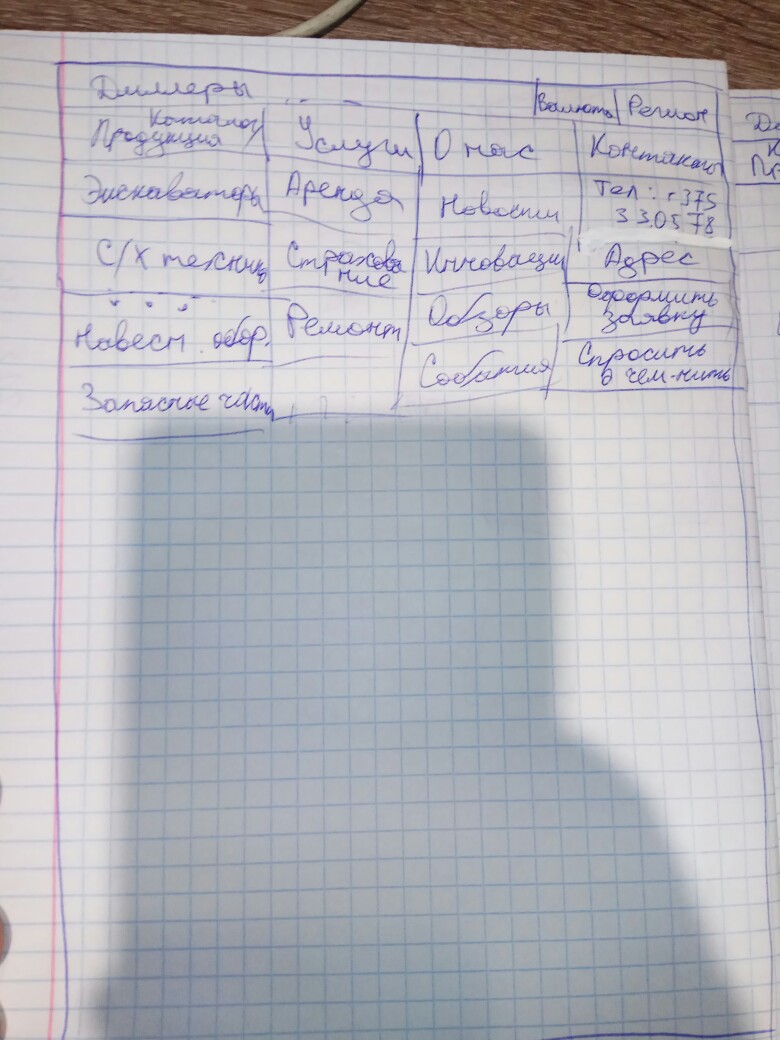 Диллеры Валюта Регион
Каталог/
Продукция Услуги О нас Контакты
Экскаваторы Аренда Новости Тел: +375
330578
С/Х техника Страхова Инновации Адрес
ние
Навесн. обор. Ремонт Обзоры Оформить
заявку
Запасные части События Спросить
о чем-нить